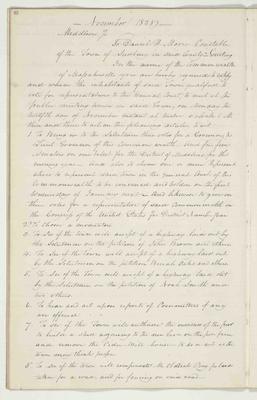 November 1838
Middlesex Ss
To Daniel H. Moore Constable
of the Town of Sudbury in said County Greeting
In the name of the Commonwealth
of Massachusetts you are hereby required to notify
and warn the inhabitants of said town qualified to
vote for representatives to the General Court to meet at the
public meeting house in said Town, on Monday the
twelfth day of November instant at o'clock
then and there to act on the following articles Viz
1. To Bring in to the Selectmen their votes for a Governor &
Lieut Governor of this Common wealth and for five
Senators on one ticket for the District of Middlesex for the
ensuing year. And also to chose one or more Representatives
to represent said town in the general Court of this
Commonwealth to be convened and holden on the first
Wednesday of January next. And likewise to give in
their votes for a representative of said Commonwealth in
the Congress of the United States for District Number four
2d To chose a moderator
3. To see if the town will accept of a highway laid out by
the Selectmen on the petition of John Brown and others
4. To see if the Town will accept of a highway laid out
by the Selectmen on the petition and others
5. To see if the Town will accept of a highway laid out
by the Selectmen on the petition of Noah Smith and
others.
6. To hear and act upon reports of Committees if any
are offered
7. To see if the Town will authorise the overseers of the poor
to build a shed adjoining to the barn on the poor farm
and remove the Cider Mill house to do or act as the
town may think proper
8. To see if the town will compensate for land
taken for a road, and for fencing on said road